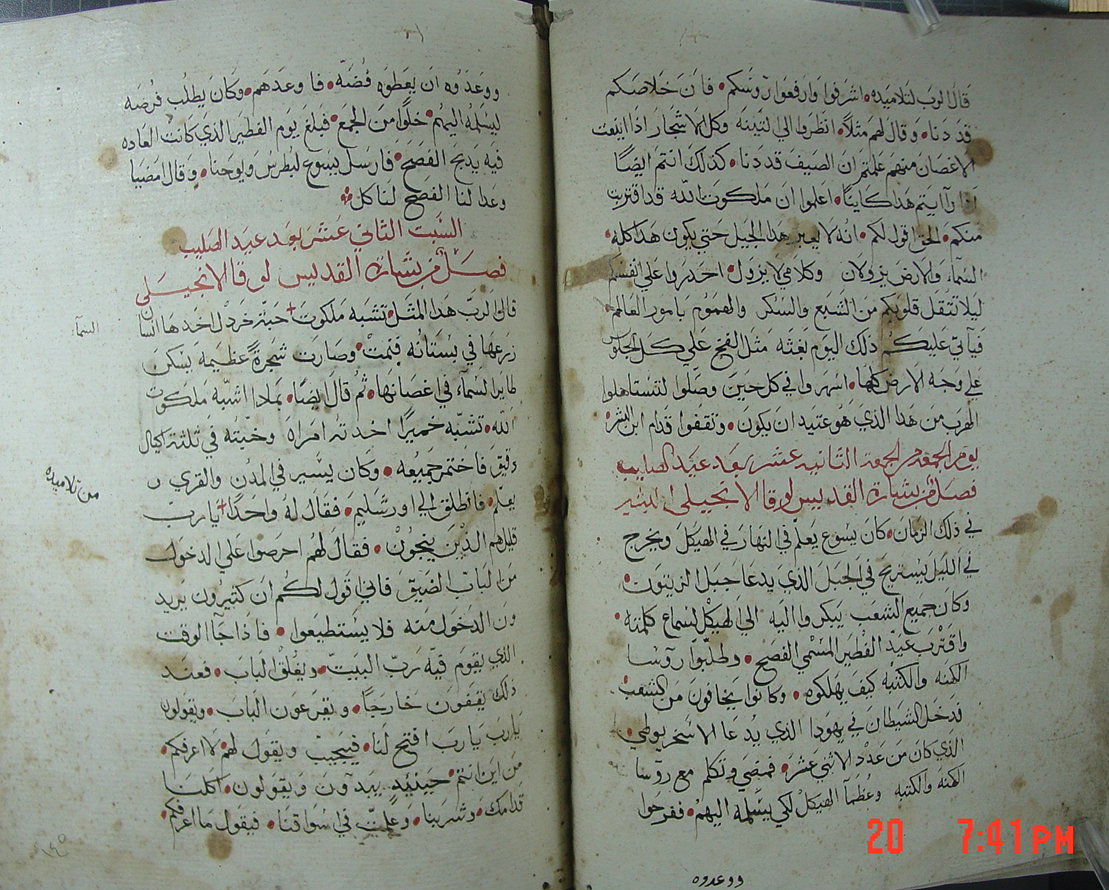 قال الرب لتلاميذه اشرفوا وارفعوا روسكم فان خلاصكم
قد دنا وقال لهم مثلاً انظروا الي التينه وكل الاشجار اذا اينعت
الاغصان منهم علمتم ان الصيف قد دنا كذلك انتم ايضًا
اذا رآايتم هذا كاينًا اعلموا ان ملكوت الله قد اقتربت
منكم الحق اقول لكم انه لا يعبر هذا الجيل حتي يكون هذا كله
السمآء والارض يزولان وكلامي لا يزول احدروا علي انفسكم
ليلا تثقل قلوبكم من الشبع والسكر والهموم بامور العالم
فيآتي عليكم ذلك اليوم بغثه مثل الفخ علي كل الجلوس
علي وجه الارض كلها اسهروا في كل حين وصلوا لتستاهلوا
الهرب من هذا الذي هو عتيد ان يكون وتقفوا قدام ابن البشر
يوم الجمعه الجمعه الثانيه عشر بعد عيد الصليب
فصل من بشارة القديس لوقا الانجيلي البشير
في ذلك الزمان كان يسوع يعلم في النهار في الهيكل ويخرج
في الليل ليستريح في الجبل الذي يدعا جبل الزيتون
وكان جميع الشعب يبكروا اليه الي الهيكل لسماع كلمته
واقترب عيد الفطير المسمي الفصح وطلبوا روسا
الكهنه والكتبه كيف يهلكوه وكانوا يخافون من الشعب
فدخل الشيطان في يهودا الذي يدعا الاسخريوطي
الذي كان من عدد الاثني عشر فمضي وتكلم مع روسا
الكهنه والكتبه وعظمآ الهيكل لكي يسلمه اليهم ففرحوا
ووعدوه
ووعدوه ان يعطوه فضه فاوعدهم وكان يطلب فرصه
ليسلمه اليهم خلوًا من الجمع فبلغ يوم الفطير الذي كانت العاده
فيه يدبح الفصح فارسل يسوع لبطرس ويوحنا وقال امضيا
وعدا لنا الفصح لناكل
السبت الثاني عشر بعد عيد الصليب
فصل من بشارة القديس لوقا الانجيلي
قال الرب هذا المثل تشبه ملكوت حبة خردل اخدها انسان
السمآ
زرعها في بستانه فنمت وصارت شجرةً عظيمه يسكن
طاير السمآء في اغصانها ثم قال ايضًا بمادا اشبه ملكوت
الله تشبه خميرًا اخدته امراه وخبته في ثلثة اكيال
دقيق فاختمر جميعه وكان يسير في المدن والقري
يعلم فانطلق الي اورشليم فقال له واحدًا يارب
من تلاميذه
قليل هم الذين ينجون فقال لهم احرصوا علي الدخول
من الباب الضيق فاني اقول لكم ان كثيرون يريد
ون الدخول منه فلا يستطيعوا فاذا جاآ الوقت
الذي يقوم فيه رب البيت ويغلق الباب فعند
ذلك يقفون خارجًا ويقرعون الباب ويقولون
يارب يارب افتح لنا فيجيب ويقول لهم لا اعرفكم
من اين انتم حينيد يبدآون ويقولون اكلنا
قدامك وشربنا وعلمت في اسواقنا فيقول ما اعرفكم
20 7:41 PM